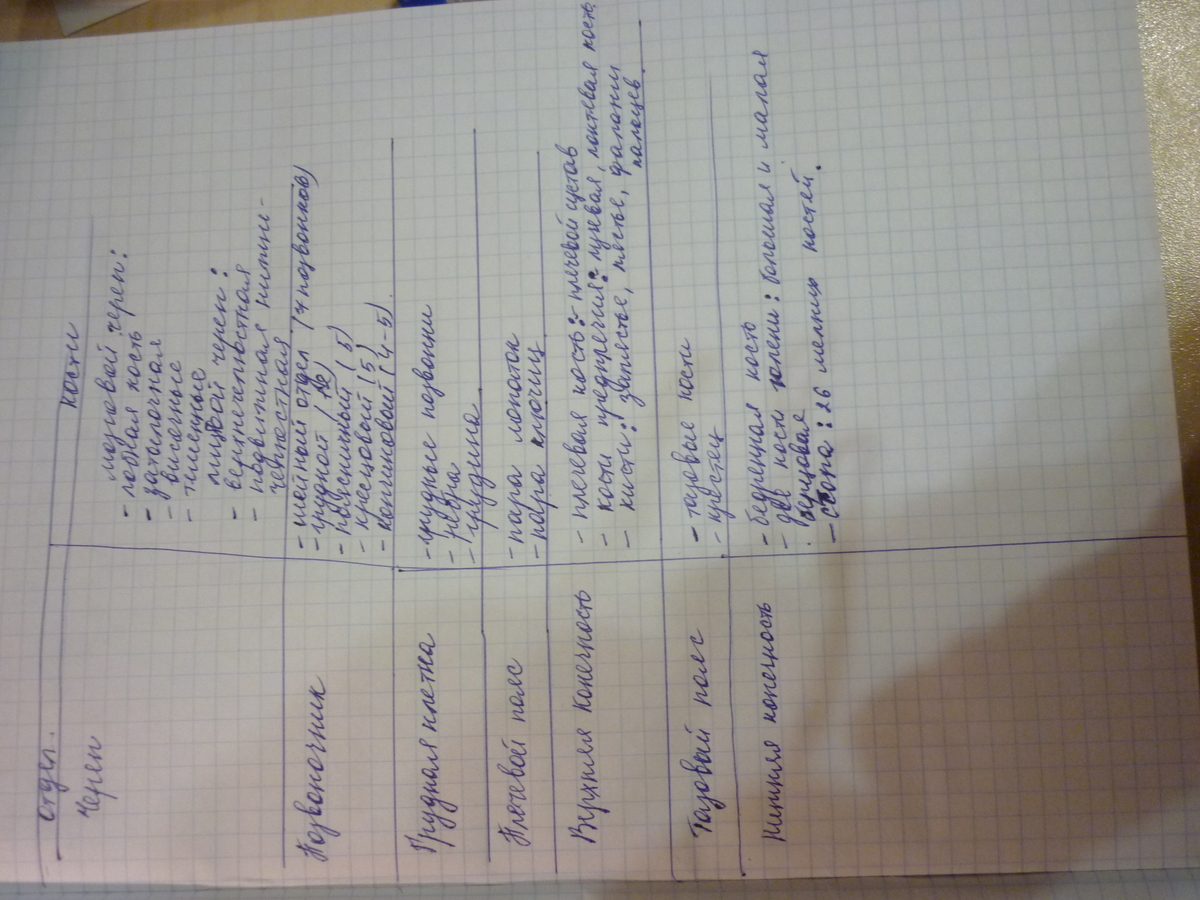 отдел.
кости
Череп
мозговой череп:
- лобная кость
- затылочная
- височные
- теменные
лицевой череп:
- верхнечелюстная
- подвижная нижне-
челюстная
Позвоночник
- шейный отдел (7 позвонков)
- грудной (12)
- поясничный (5)
- кресцовый (5)
- копчиковый (4-5)
Грудная клетка
- грудные позвонки
- ребра
- грудина
Плечевой пояс
- пара лопаток
- пара ключиц
Верхняя конечность
- плечевая кость:- плечевой сустав
- кости предплечия:- лучевая, локтевая кость
- кисти: запястье, пястье, фаланги
пальцев
Тазовый пояс
- тазовые кости
- крестец
Нижняя конечность
- бедренная кость
- две кости голени: большая и малая
берцовая
- стопа: 26 мелких костей.